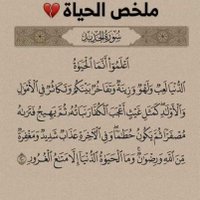 ملخص الحياة 💔
سُورَةُ الحَدِيد
ٱعۡلَمُوٓاْ أَنَّمَا ٱلۡحَيَوٰةُ
ٱلدُّنۡيَا لَعِبٞ وَلَهۡوٞ وَزِينَةٞ وَتَفَاخُرُۢ بَيۡنَكُمۡ وَتَكَاثُرٞ فِي ٱلۡأَمۡوَٰلِ
وَٱلۡأَوۡلَٰدِۖ كَمَثَلِ غَيۡثٍ أَعۡجَبَ ٱلۡكُفَّارَ نَبَاتُهُۥ ثُمَّ يَهِيجُ فَتَرَىٰهُ
مُصۡفَرّٗا ثُمَّ يَكُونُ حُطَٰمٗاۖ وَفِي ٱلۡأٓخِرَةِ عَذَابٞ شَدِيدٞ وَمَغۡفِرَةٞ
مِّنَ ٱللَّهِ وَرِضۡوَٰنٞۚ وَمَا ٱلۡحَيَوٰةُ ٱلدُّنۡيَآ إِلَّا مَتَٰعُ ٱلۡغُرُورِ